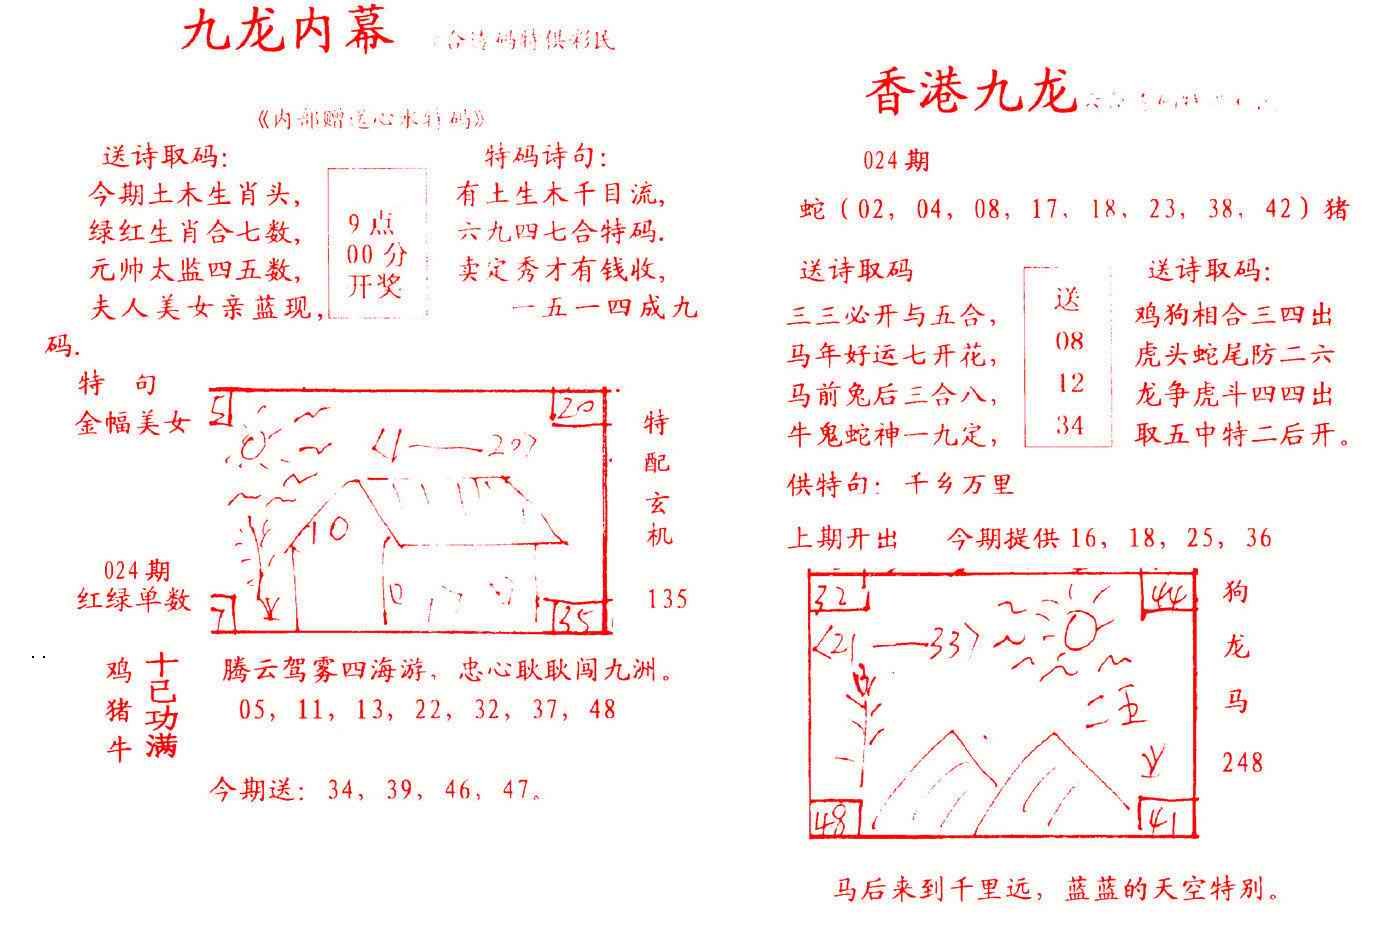 九龙内幕
合 码特供彩民
《内部赠送心水特码》
送诗取码:
今期土木生肖头,
绿红生肖合七数,
元帅太监四五数,
夫人美女亲蓝现,
码.
9点
00分
开奖
特码诗句:
有土生木千目流,
六九四七合特码.
卖定秀才有钱收,
一五一四成九
特 句
金幅美女
024期
红绿单数
5
20
〈1——20〉
10
0
7
35
特
配
玄
机
135
鸡
猪
牛
十已功满
腾云驾雾四海游、忠心耿耿闯九洲。
05, 11, 13, 22, 32, 37, 48
今期送: 34, 39, 46, 47。
香港九龙
024期
蛇(02, 04, 08, 17, 18, 23, 38, 42)猪
送诗取码
三三必开与五合,
马年好运七开花,
马前兔后三合八,
牛鬼蛇神一九定,
送
08
12
34
送诗取码:
鸡狗相合三四出
虎头蛇尾防二六
龙争虎斗四四出
取五中特二后开。
供特句: 千乡万里
上期开出 今期提供16, 18, 25, 36
32
44
〈21——33〉
二五
48
41
狗
龙
马
248
马后来到千里远, 蓝蓝的天空特别。